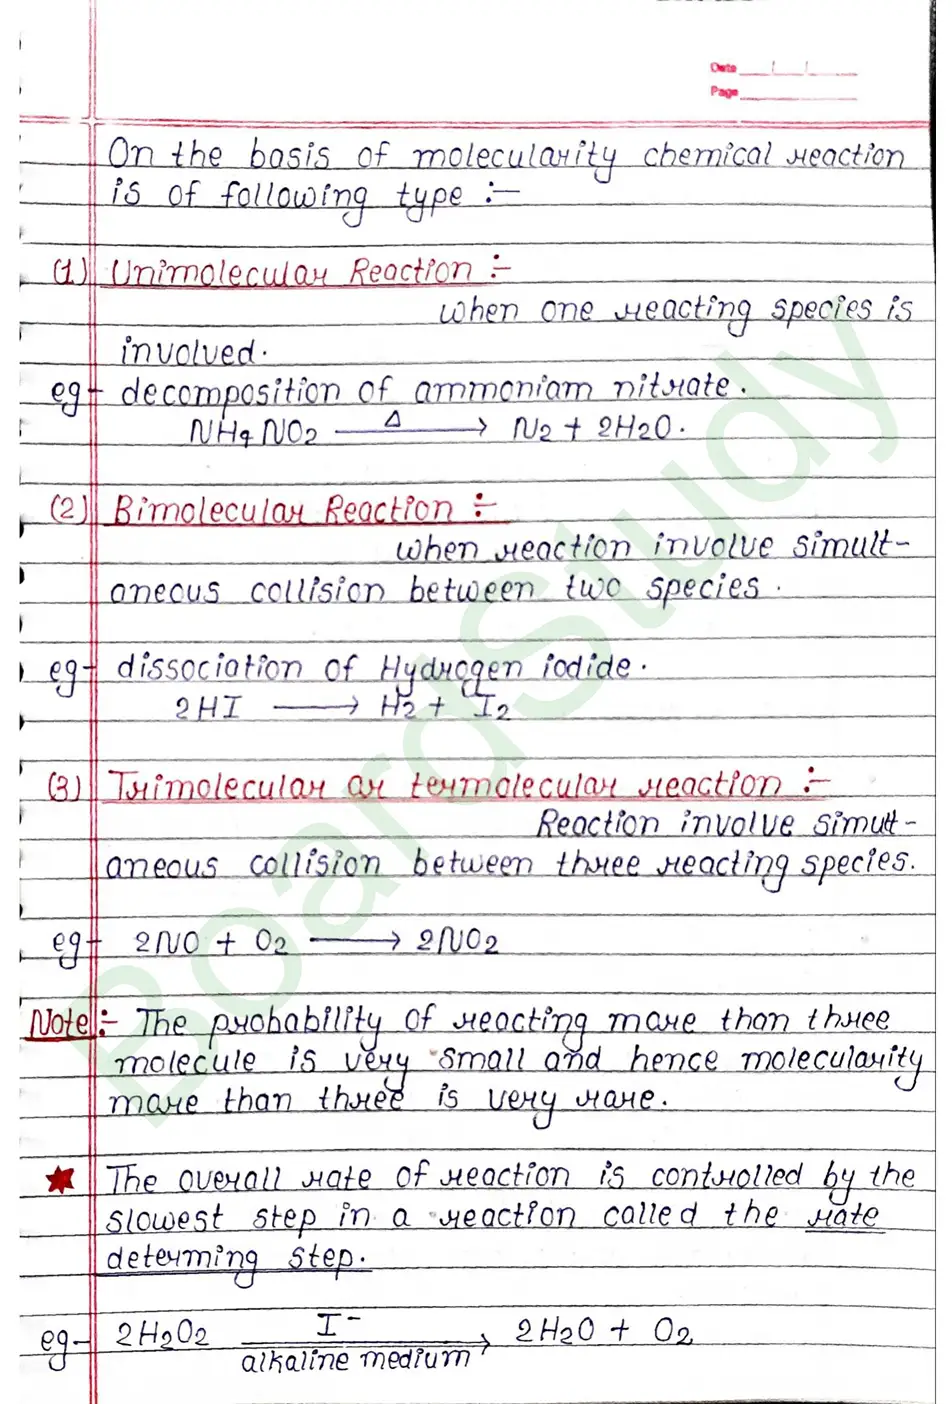 Date / /
Page
On the basis of molecularity chemical reaction
is of following type :-
(1) Unimolecular Reaction :-
when one reacting species is
involved.
eg- decomposition of ammoniam nitrate.
NH4NO2 —Δ→ N2 + 2H2O.
(2) Bimolecular Reaction :-
when reaction involve simult-
aneous collision between two species.
eg- dissociation of Hydrogen iodide.
2HI → H2 + I2
(3) Trimolecular or termolecular reaction :-
Reaction involve simult-
aneous collision between three reacting species.
eg- 2NO + O2 → 2NO2
Note:- The probability of reacting more than three
molecule is very small and hence molecularity
more than three is very rare.
★ The overall rate of reaction is controlled by the
slowest step in a reaction called the rate
determing step.
I-
eg- 2H2O2 → 2H2O + O2
alkaline medium
BoardStudy